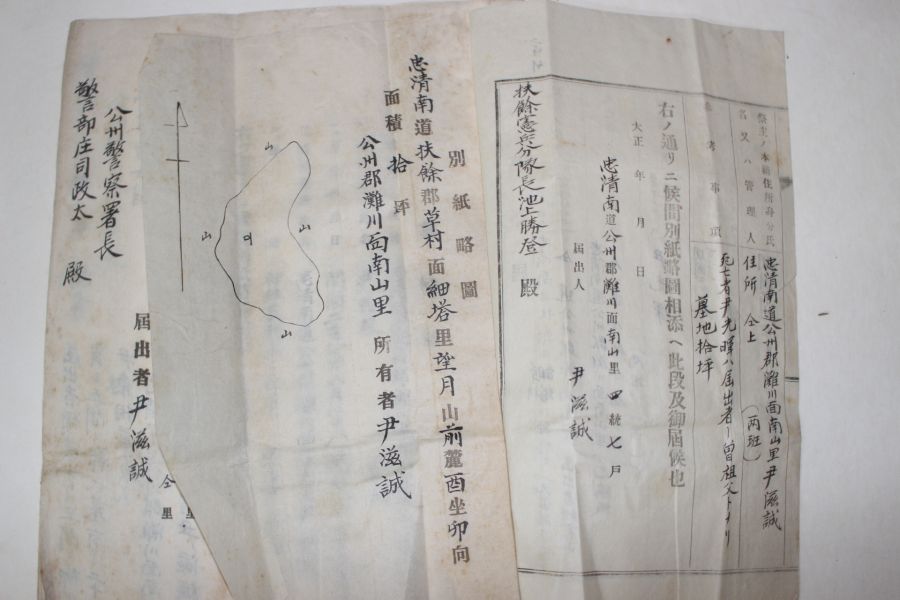 祭主ノ本籍住所身分氏
名又ハ管理人
忠清南道公州郡灘川面南山里尹滋誠
住所 仝上 (两班)
參考事項
死亡者尹光暉ハ届出者ノ曽祖父トナリ
墓地拾坪
右ノ通リニ候間別紙略圖相添ヘ此段及御届候也
大正 年 月 日
忠清南道公州郡灘川面南山里四統七戸
届出人 尹滋誠
扶餘憲兵分隊長池上勝登 殿
別紙略圖
忠清南道扶餘郡草村面細塔里望月山前麓酉坐卯向
面積拾坪
公州郡灘川面南山里 所有者尹滋誠
山
山
山
山
届出者尹滋誠
公州警察署長
警部庄司政太 殿
仝里
里